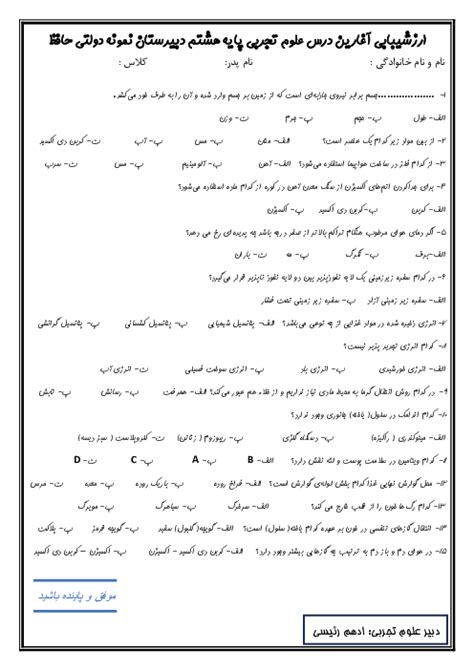 ارزشیابی آغازین درس علوم تجربی پایه هشتم دبیرستان نمونه دولتی حافظ
نام و نام خانوادگی : نام پدر: کلاس :
۱- ..................جسم برابر نیروی جاذبه‌ای است که از زمین بر جسم وارد شده و آن را به طرف خود می‌کشد.
الف- طول ب- حجم پ- جرم ت- وزن
۲- از بین مواد زیر کدام یک عنصر است؟ الف- هدن ب- مس پ- آب ت- کربن دی اکسید
۳- از کدام فلز در ساخت هواپیما استفاده می‌شود؟ الف- آهن ب- آلومینیم پ- مس ت- سرب
۴- برای جداکردن اتم‌های اکسیژن از سنگ معدن آهن در کوره از کدام ماده استفاده می‌شود؟
الف- کربن ب-کربن دی اکسید پ- اکسیژن
۵- اگر دمای هوای مرطوب هنگام تراکم بالاتر از صفر درجه باشد چه پدیده‌ای رخ می دهد؟
الف-برف ب- تگرگ پ- مه ت- باران
۶- در کدام سفره زیرزمینی یک لایه نفوذپذیر بین دو لایه نفوذ ناپذیر قرار می‌گیرد؟
الف- سفره زیر زمینی آزاد ب- سفره زیر زمینی تحت فشار
۷- انرژی ذخیره شده در مواد غذایی از چه نوعی می‌باشد؟ الف- پتانسیل شیمیایی ب- پتانسیل کشسانی پ- پتانسیل گرانشی
۸- کدام انرژی تجدید پذیر نیست؟
الف- انرژی خورشیدی ب- انرژی باد پ- انرژی سوخت فسیلی ت- انرژی آب
۹- در کدام روش انتقال گرما به محیط مادی نیاز نداریم و از خلاء هم عبور می‌کند؟ الف- همرفت ب- رسانش پ- تابش
۱۰- کدام اندامک در سلول( یاخته) جانوری وجود ندارد؟
الف- میتوکندری ( راکیزه) ب- دستگاه گلژی پ- ریبوزوم ( رناتن) ت- کلروپلاست ( سبز دیسه)
۱۱- کدام ویتامین در سلامت پوست و لثه نقش دارد؟ الف- B ب- A پ- C ت- D
۱۲- محل گوارش نهایی غذا کدام بخش لوله‌ی گوارش است؟ الف- فراخ روده ب- باریک روده پ- معده ت- مری
۱۳- کدام رگ ها خون را از قلب خارج می کند؟ الف- سرخرگ ب- سیاهرگ پ- مویرگ
۱۴- انتقال گازهای تنفسی در خون بر عهده کدام یاخته( سلول) است؟ الف- گویچه( گلبول) سفید ب- گویچه قرمز پ- پلاکت
۱۵- در هوای دم و بازدم به ترتیب چه گازهایی بیشتر وجود دارد؟ الف- کربن دی اکسید - اکسیژن ب- اکسیژن – کربن دی اکسید
موفق و پاینده باشید
دبیر علوم تجربی: ادهم رئیسی